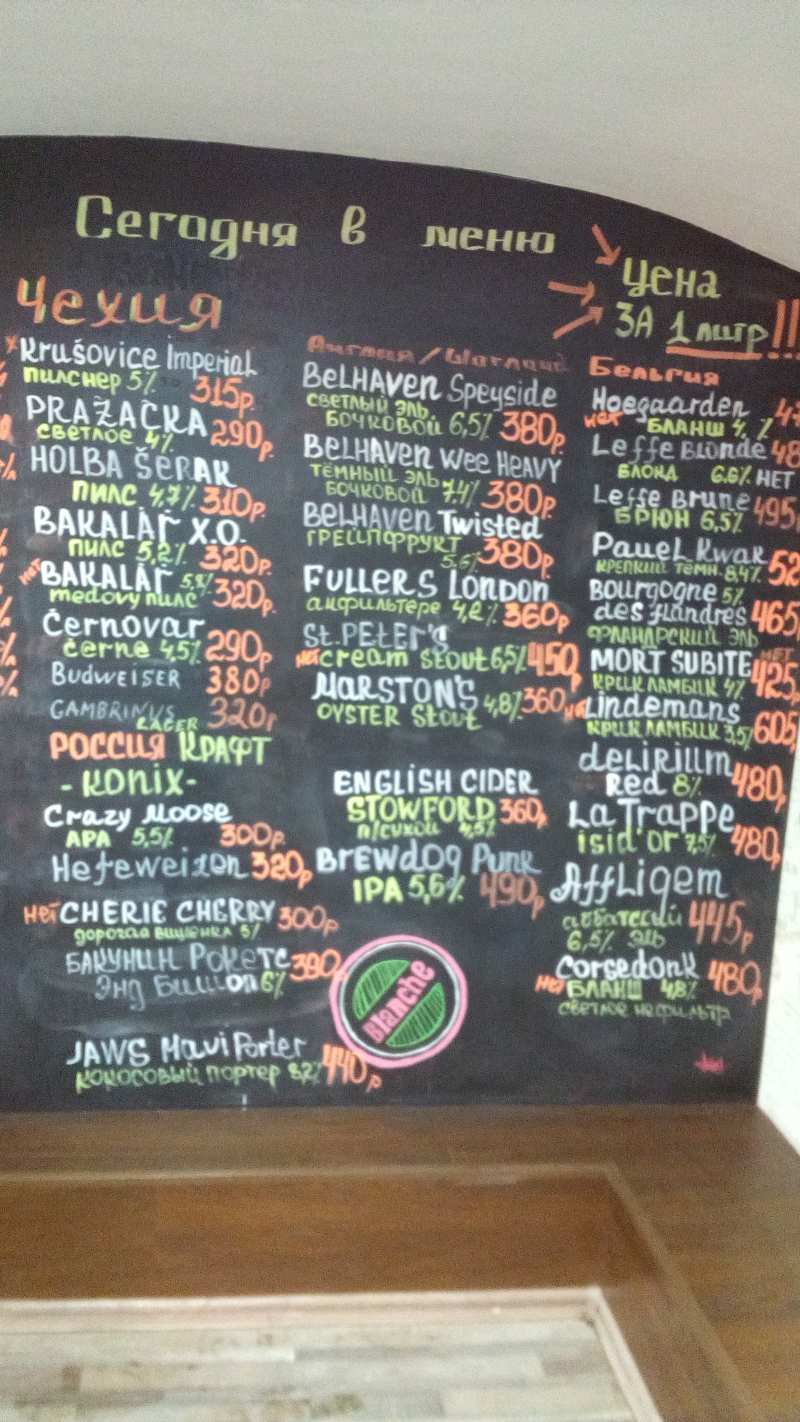 Сегодня в меню
Цена
ЗА 1 литр!!!
Чехия
Krušovice Imperial
пилснер 5% 315р.
PRAŽAČKA
светлое 4% 290р.
HOLBA ŠERAK
пилс 4,7% 310р.
BAKALÁŘ X.O.
пилс 5,2% 320р.
нет BAKALÁŘ
medovy пилс 320р.
Černovar
černe 4,5% 290р
Budweiser 380р
GAMBRINUS
LAGER 320р
РОССИЯ КРАФТ
- KONIX -
Crazy Moose
APA 5,5% 300р.
Hefeweizen 320р.
нет CHERIE CHERRY 300р.
дорогая вишенка 5%
БАКУНИН Рокетс 390р
Энд 6%
JAWS Mavi Porter
кокосовый портер 440р
Англия/
BELHAVEN Speyside
светлый эль
бочковой 6,5% 380р.
BELHAVEN Wee HEAVY
тёмный эль
бочковой 7.4% 380р.
BELHAVEN Twisted
ГРЕЙПФРУКТ 5.6% 380р
FULLERS LONDON
анфильтере 4,2% 360р.
St.PETER'S
нет cream stout 6,5% 450р
MARSTON'S
OYSTER Stout 4,8% 360р
ENGLISH CIDER
STOWFORD 360р
п/сухой 4,5%
BREWDOG Punk
IPA 5,6% 490р
Blanche
Бельгия
Hoegaarden
нет БЛАНШ
Leffe BLONDe
БЛОНД 6.6% НЕТ
Leffe Brune
БРЮН 6,5% 495
Pauel Kwak
КРЕПКИЙ ТЕМН. 8,4%
Bourgogne 5%
des flandres 465
ФЛАНДРСКИЙ ЭЛЬ
нет
MORT SUBITE
КРИК ЛАМБИК 4% 425р
нет Lindemans
КРИК ЛАМБИК 3,5% 605
deLIRIUM
Red 8% 480р
La Trappe
isid'or 7,5% 480р
AffLigem
аббатский
6,5% эль 445р
Corsedonk
нет БЛАНШ 4,8% 480р
светлое нефильтр